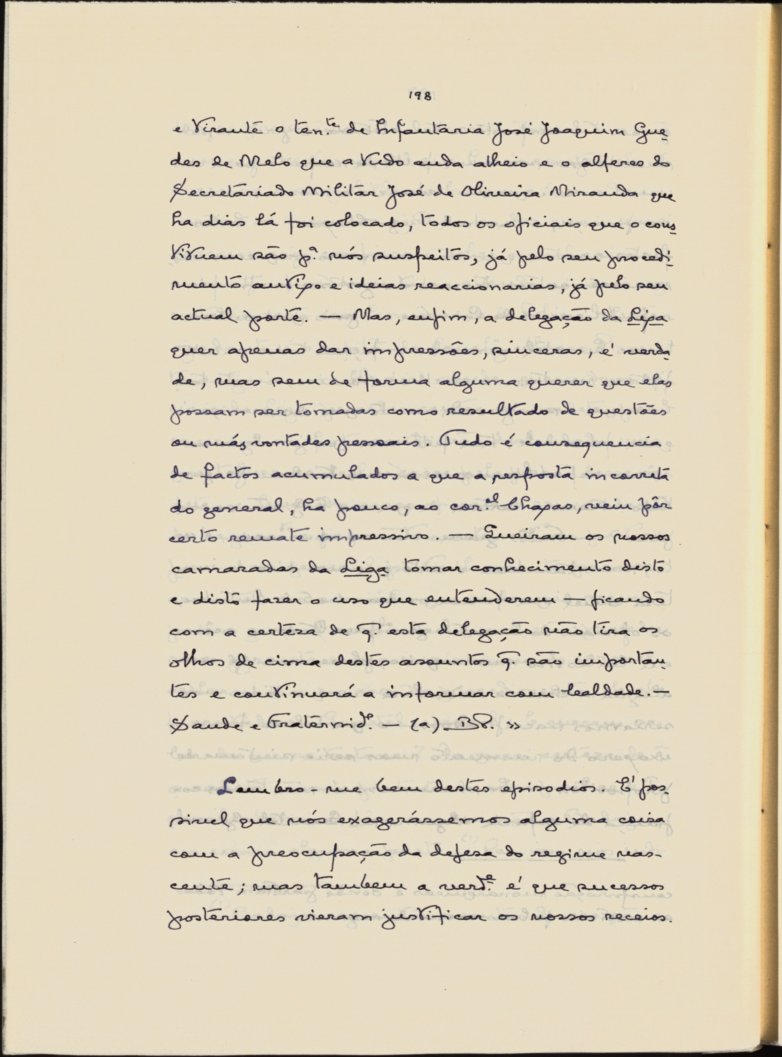 198
e Tirante o ten.te de Infantaria José Joaquim Gue-
des de Melo que a tudo anda alheio e o alferes do
Secretariado Militar José de Oliveira Miranda que
ha dias lá foi colocado, todos os oficiais que o cons-
tituem são pª nós suspeitos, já pelo seu procedi-
mento antigo e ideias reaccionarias, já pelo seu
actual porte. — Mas, enfim, a delegação da Liga
quer apenas dar impressões, sinceras, é verda-
de, mas sem de forma alguma querer que elas
possam ser tomadas como resultado de questões
ou más vontades pessoais. Tudo é consequencia
de factos acumulados a que a resposta incorrétà
do general, ha pouco, ao cor.el Chagas, veiu pôr
certo remate impressivo. — Queiram os nossos
camaradas da Liga tomar conhecimento disto
e disto fazer o uso que entenderem — ficando
com a certeza de q. esta delegação não tira os
olhos de cima destes assuntos q. são importan-
tes e continuará a informar com lealdade. —
Saude e Fraternide. — (a) BP. »
Lembro-me bem destes episodios. É pos-
sivel que nós exagerássemos alguma coisa
com a preocupação da defesa do regime nas-
cente; mas tambem a verd.e é que sucessos
posteriores vieram justificar os nossos receios.